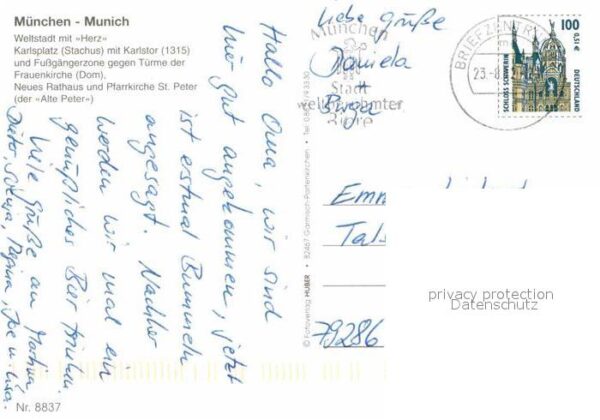 München - Munich
Weltstadt mit »Herz»
Karlsplatz (Stachus) mit Karlstor (1315)
und Fußgängerzone gegen Türme der
Frauenkirche (Dom),
Neues Rathaus und Pfarrkirche St. Peter
(der »Alte Peter»)
Hallo Oma, wir sind
hier gut angekommen, jetzt
ist erstmal Bummeln
angesagt. Nachher
werden wir mal ein
genüßliches Bier trinken.
Viele Grüße an Martina,
Dieter, Regina,
liebe Grüße
Daniela
+
München
Stadt
weltbekannter
Biere
BRIEFZENTR
23.-8.
100
0,51 €
SCHLOSS SCHWERIN
DEUTSCHLAND
Tal
79286
© Fotoverlag HUBER · 82467 Garmisch-Partenkirchen · Tel.
privacy protection
Datenschutz
Nr. 8837